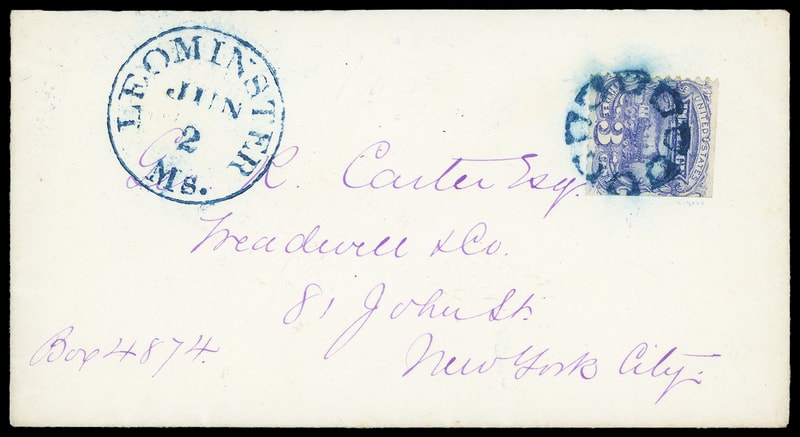 LEOMINSTER
JUN
2
Ms.
UNITED STATES
3
Geo. R. Carter Esq.
Treadwell & Co.
81 John St.
Box 4874.
New York City.